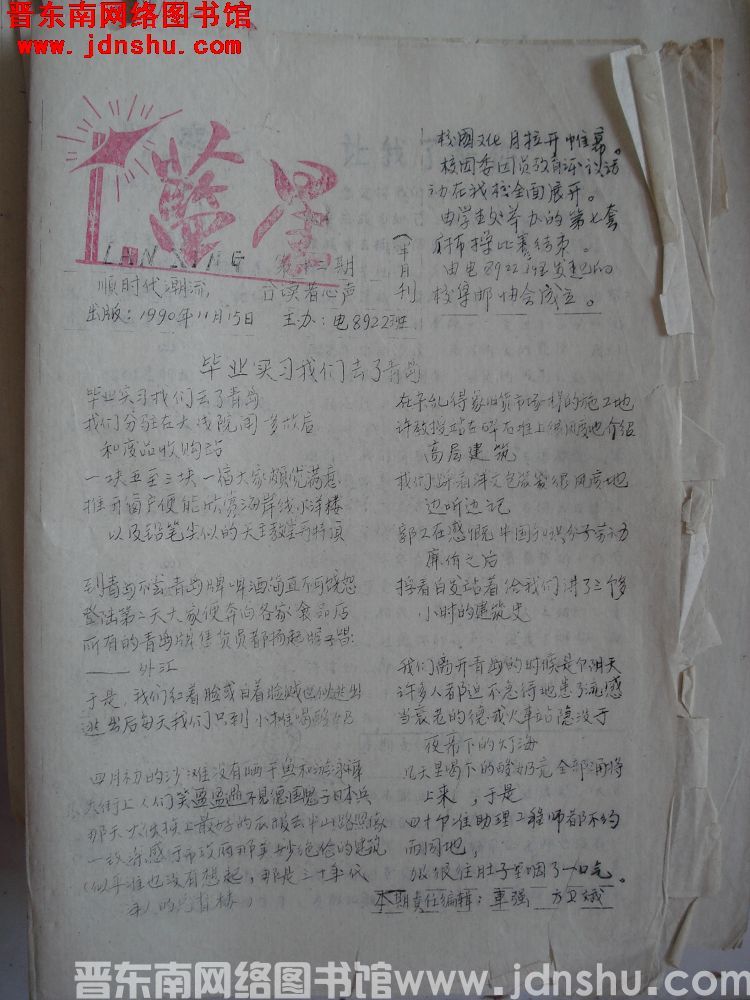 晋东南网络图书馆
www.jdnshu.com
蓝星
LAN XING
第十二期
(半月刊
顺时代潮流,
合读者心声
出版:1990年11月15日 主办:电8922班
校园文化月拉开帷幕。
校团委团员教育评议活
动在我校全面展开。
由学生处举办的第七套
广播操比赛结束。
由电8922班发起的
校集邮协会成立。
毕业实习我们去了青岛
毕业实习我们去了青岛
我们分驻在大流院
和废品收购站
一块五至三块一宿大家颇优满意
推开窗户便能欣赏海岸线小洋楼
以及铅笔尖似的天主教堂哥特顶
到青岛不尝青岛牌啤酒简直不可饶恕
登陆第二天大家便奔向各家食品店
所有的青岛牌售货员都扬起牌子唱:
——外汇
于是,我们红着脸或白着脸贼也似逃出
逃出后每天我们只到小摊喝酸奶
四月初的沙滩没有晒干鱼和游泳裤
大街上人们笑盈盈遍不见德国鬼子日本兵
那天大伙换上最好的衣服去半山路照像
一致深感于市政府那美妙绝伦的建筑
(似乎谁也没有想起,那是三十年代
在杂乱得象旧货市场样的施工地
许教授站在碎石堆上很风度地介绍
高层建筑
我们踩着洋灰包装袋很风度地
边听边记
郭工在感慨中国知识分子劳动
廉价之后
捋着白发站着给我们讲了三个多
小时的建筑史
我们离开青岛的时候是个阴天
许多人都迫不急待地患了流感
当衰老的德式火车站隐没于
夜幕下的灯海
几天里喝下的酸奶完全都涌将
上来,于是
四十个准助理工程师都不约
而同地,
狠狠往肚子里咽了一口气。
本期责任编辑:车强 方卫娥
晋东南网络图书馆www.jdnshu.com